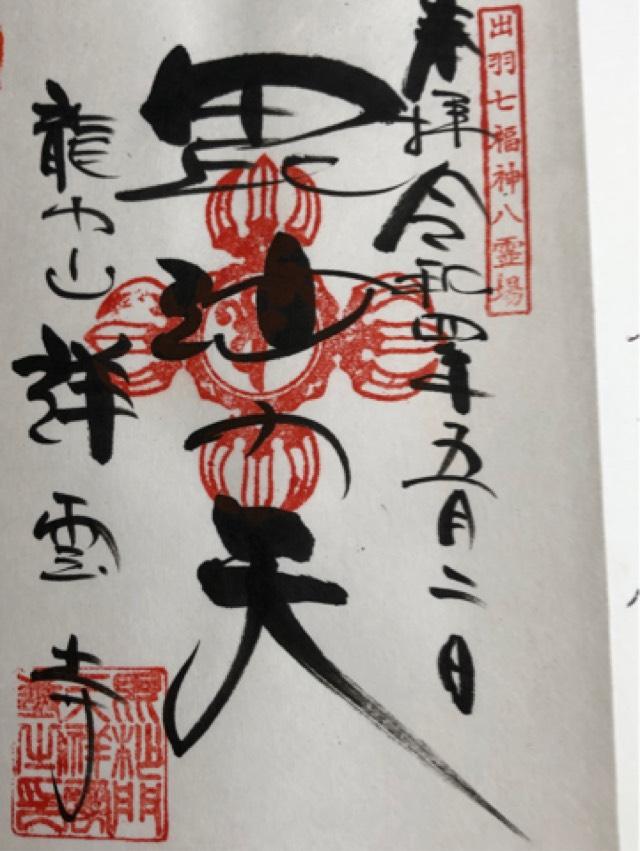 出羽七福神八霊場
奉拝 令和四年五月二日
毘沙門天
龍 山 祥雲寺